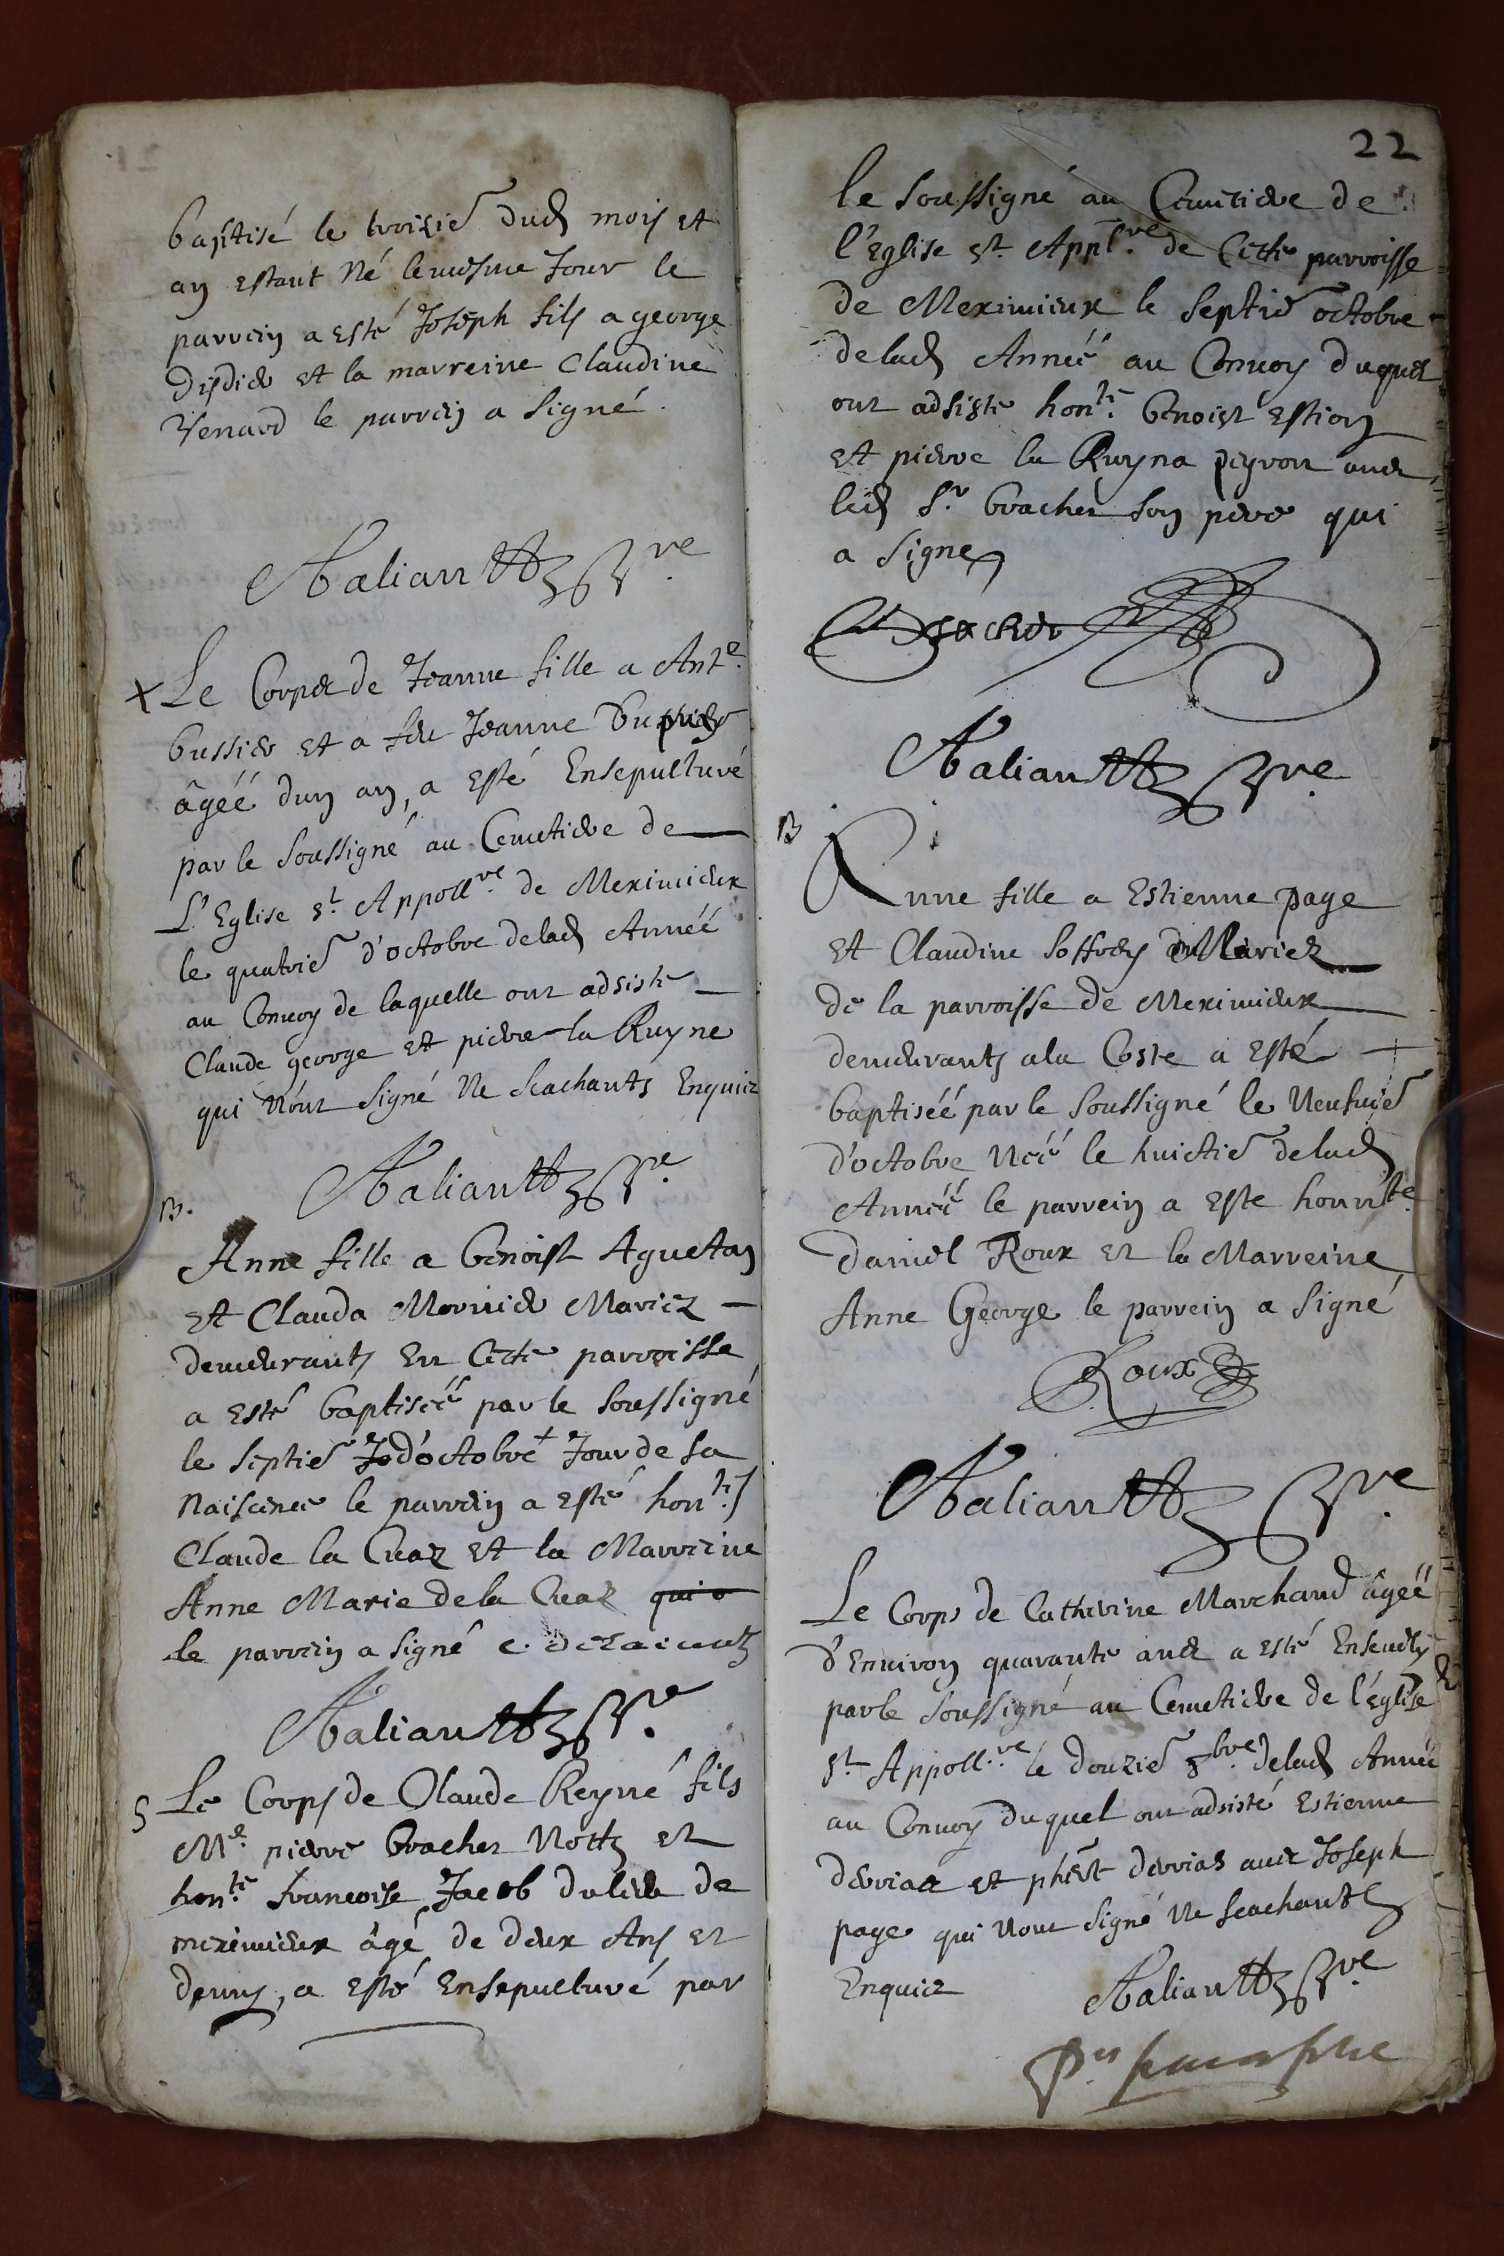 baptisé le troisie dud mois et
an estant Né le mesme Jour le
parrein a esté Joseph fils a george
Disdier et la marreine Claudine
Venard le parrein a signé.
Le Corps de Jeanne fille a Ant.e
bussier et a feu Jeanne
âgéé dun an, a esté Ensepulturé
par le soussigné au Cemetiere de
L'Eglise st. Appoll.re de Meximieux
le quatrie d'octobre delad Année
au Convoy de laquelle ont adsisté
Claude george et pierre la Ruyne
qui n'ont signé Ne scachants Enquis
B.
Anne fille a benoist Aguetan
et Clauda Mornier Mariez
demeurants En Cette parroisse
a esté baptiséé par le soussigné
le septie Jo d'octobre + Jour de sa
Naiscence le parrein a esté hon.te
Claude la Cuaz et la Marreine
Anne Marie de la Cuaz qui a
le parrein a signé
S Le Corps de Claude Reyné fils
Me. pierre bracher Nott et
hon.te francoise Jacob dulieu de
meximieux âgé de deux Ans et
demy, a esté Ensepulturé par
22
le soussigné au Cemetiere de
l'Eglise st. Appl.re de Cette parroisse
de Meximieux le septie octobre
delad Année au Convoy duquel
ont adsisté hon.te benoist Estion
et pierre la Ruyna peyron avec
led Sr. bracher son pere qui
a signe
Bracher
B
Anne fille a Estienne page
et Claudine Soffrey Mariez
de la parroisse de Meximieux
demeurants a la Coste a esté
baptiséé par le soussigné le Neufvie
d'octobre Néé le huictie delad
Année le parrein a este honn.te
Daniel Roux et la Marreine
Anne George le parrein a signé
Roux
Le Corps de Catherine Marchand âgéé
d'Environ quarante ans a esté Ensevely
par le soussigné au Cemetiere de l'Eglise
st. Appoll.re le douzie 8bre delad Année
au Convoy duquel ont adsisté Estienne
derrias et phēt derrias avec Joseph
page qui n'ont signé Ne scachants
Enquis